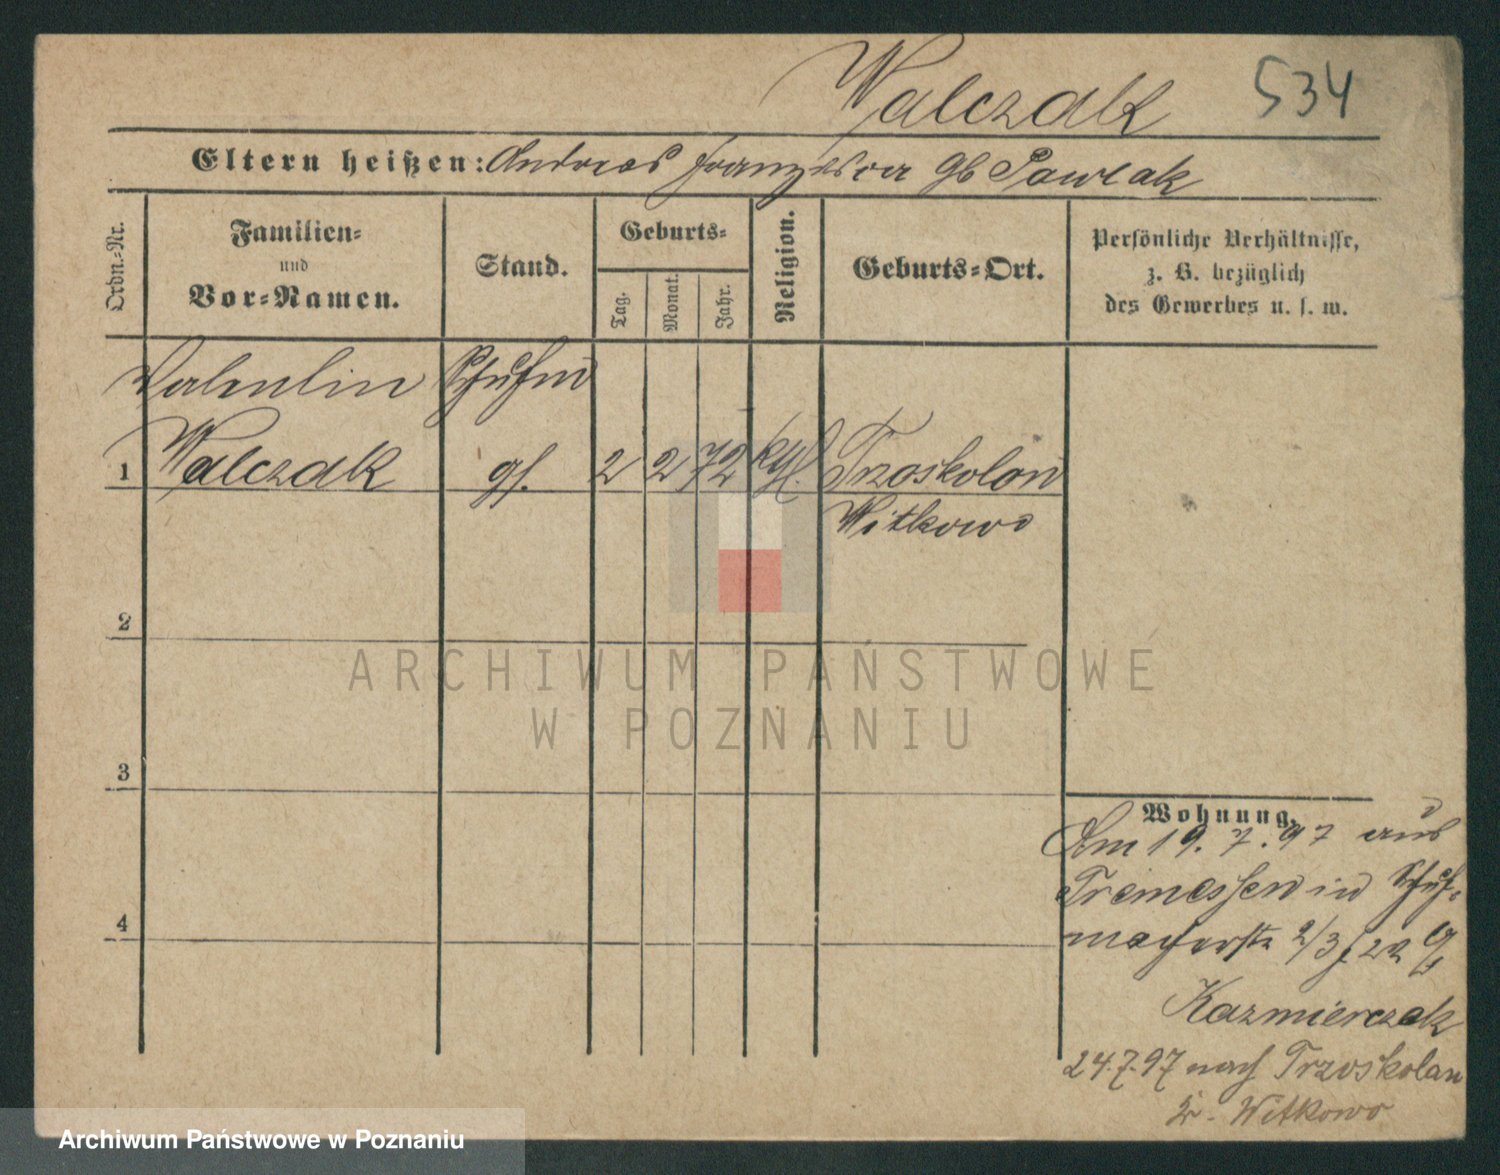 Walczak 534
Eltern heißen: Andreas Franziska gb Pawlak
Ordn.-Nr.
Familien-
und
Vor-Namen.
Stand.
Geburts-
Tag.
Monat.
Jahr.
Religion.
Geburts-Ort.
Persönliche Verhältnisse,
z. B. bezüglich
des Gewerbes u. s. w.
Valentin
1 Walczak 2 2 72 kth. Trzoskolon
Witkowo
2
3
4
Wohnung.
Am 19. 7. 97 aus
Tremessen in Schuh-
macherstr 2/3
Kazmierczak
24.7.97 nach Trzoskolon
Kr. Witkowo
ARCHIWUM PAŃSTWOWE
W POZNANIU
Archiwum Państwowe w Poznaniu